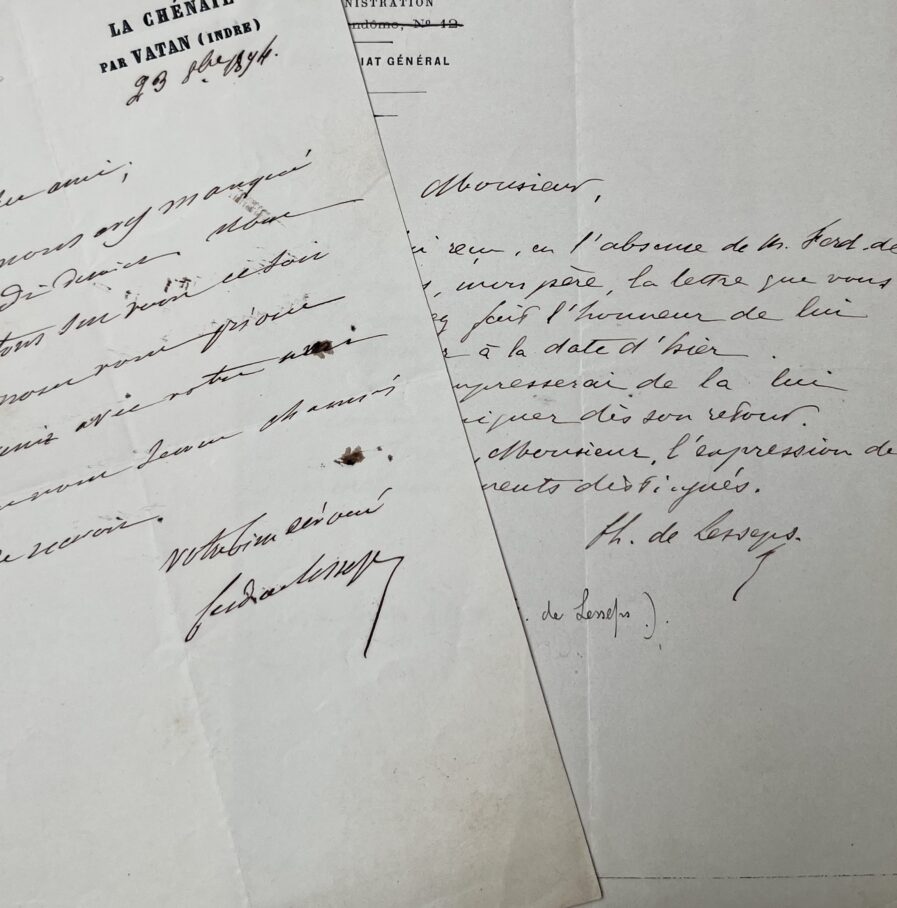 LA CHÉNAIE
PAR VATAN (INDRE)
23 8bre 1874.
ami,
nous avez manqué
dernier nous
son ce soir
nous vous prions
avec votre ami
vous serons charmés
recevoir.
votre bien dévoué
Ferd de Lesseps
NISTRATION
endôme, No 12
IAT GÉNÉRAL
Monsieur,
reçu, en l'absence de M. Ferd. de
s, mon père, la lettre que vous
ez fait l'honneur de lui
r à la date d'hier.
mpresserai de la lui
iquer dès son retour.
, Monsieur, l'expression de
ments distingués.
Ch. de Lesseps.
de Lesseps).